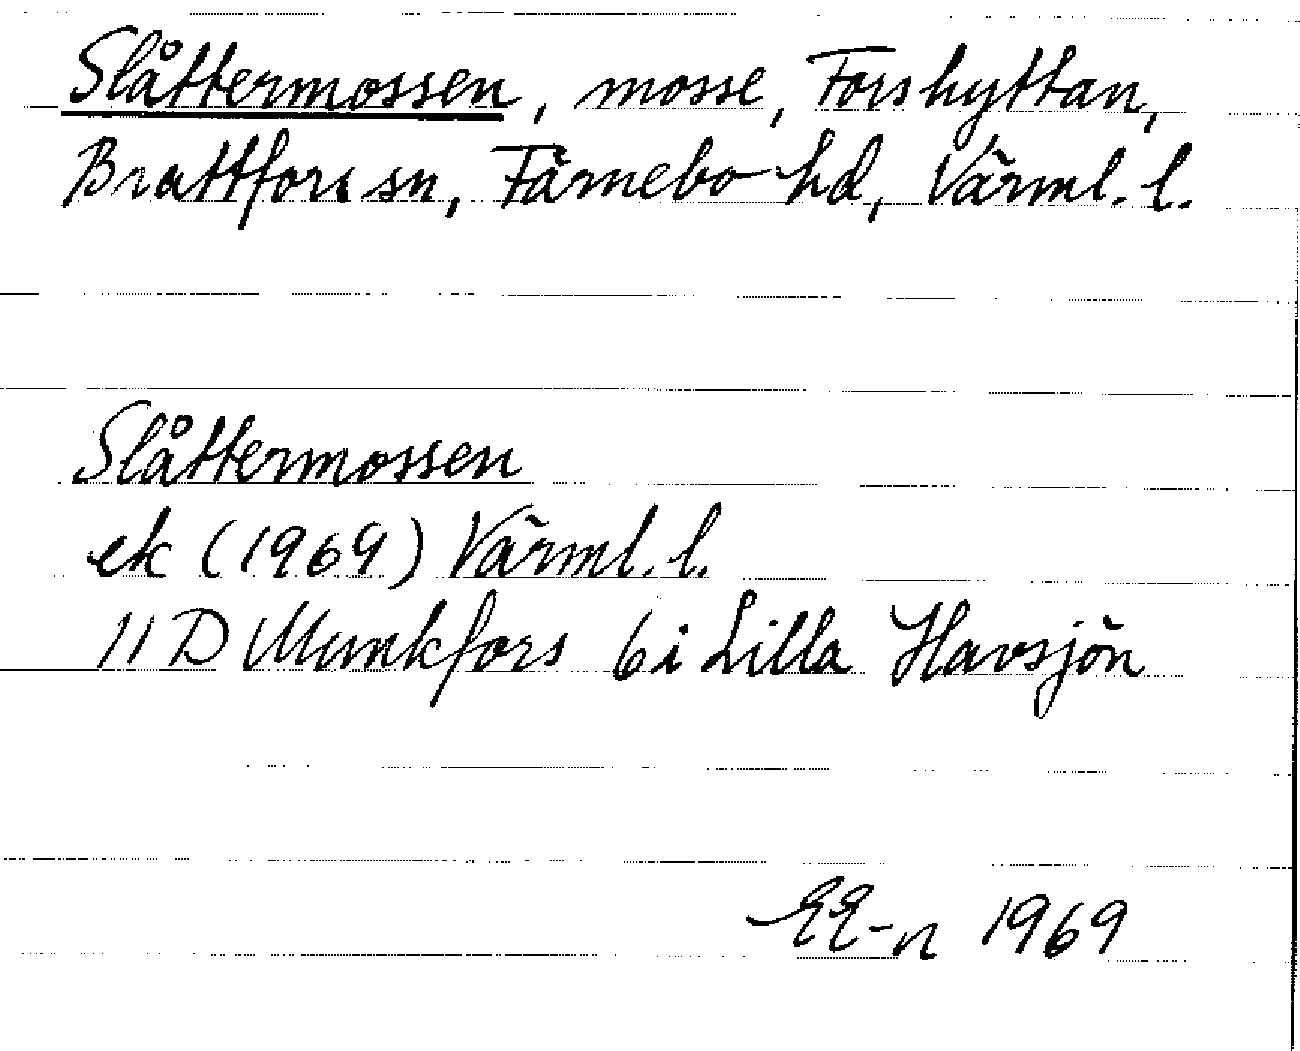 Slåttermossen, mosse, Forshyttan,
Brattfors sn, Färnebo hd, Värml. l.
Slåttermossen
ek (1969) Värml. l.
11 D Munkfors 6 i Lilla Havsjön
EE-n 1969